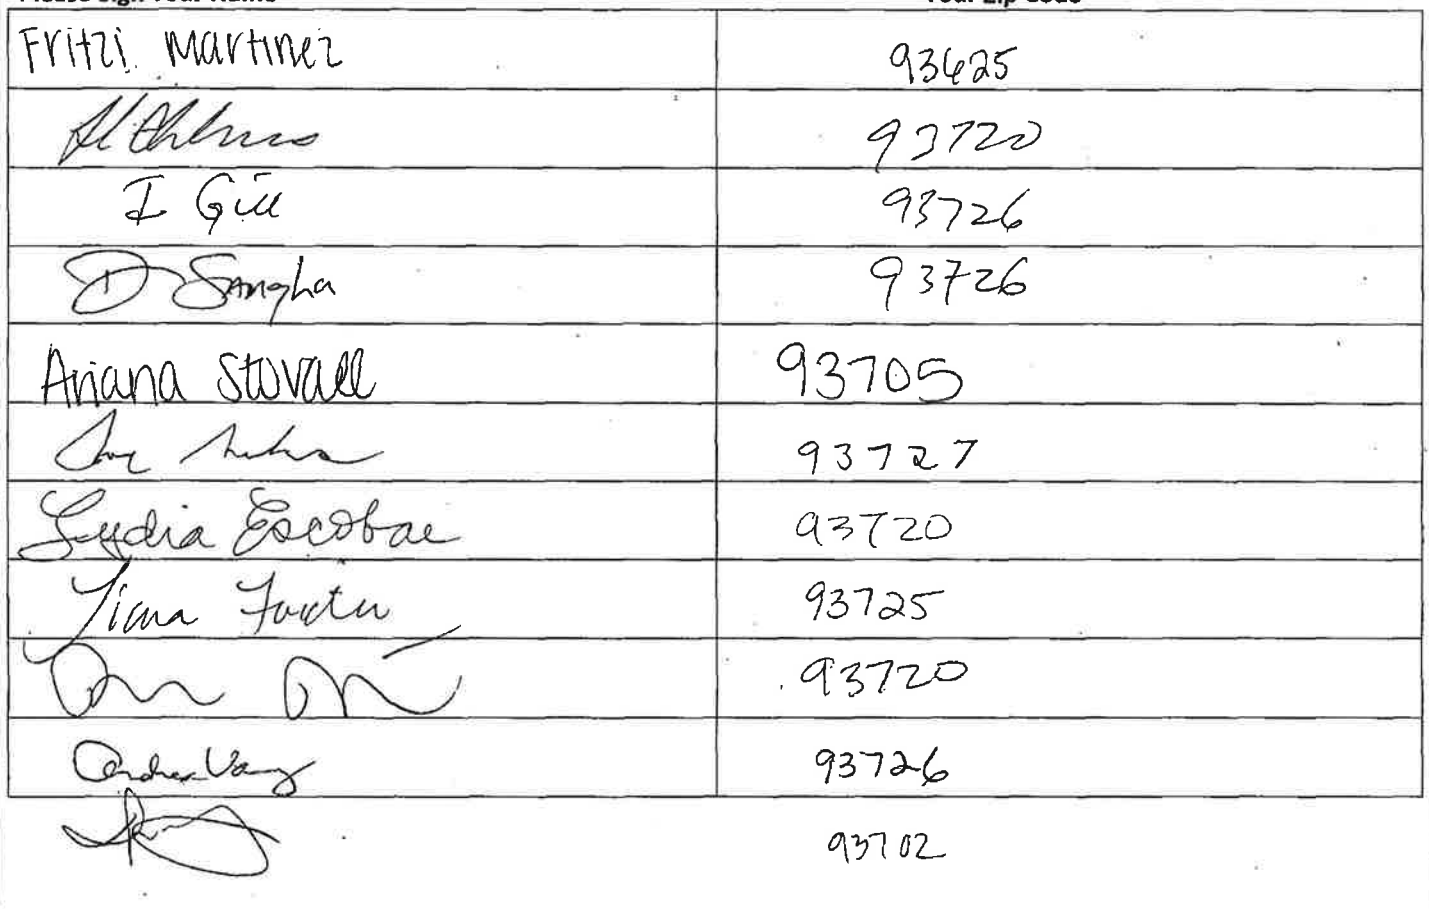 Please Sign Your Name Your Zip Code
Fritzi Martinez 93625
93720
I Gill 93726
D Sangha 93726
Ariana Stovall 93705
93727
Lydia Escobar 93720
Tiana 93725
93720
Andrea Vang 93726
93702